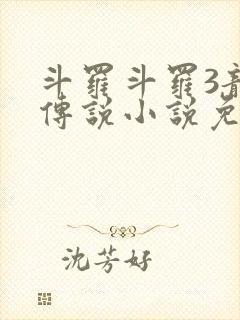 斗羅斗羅3龍
傳說小說免
沈芳好